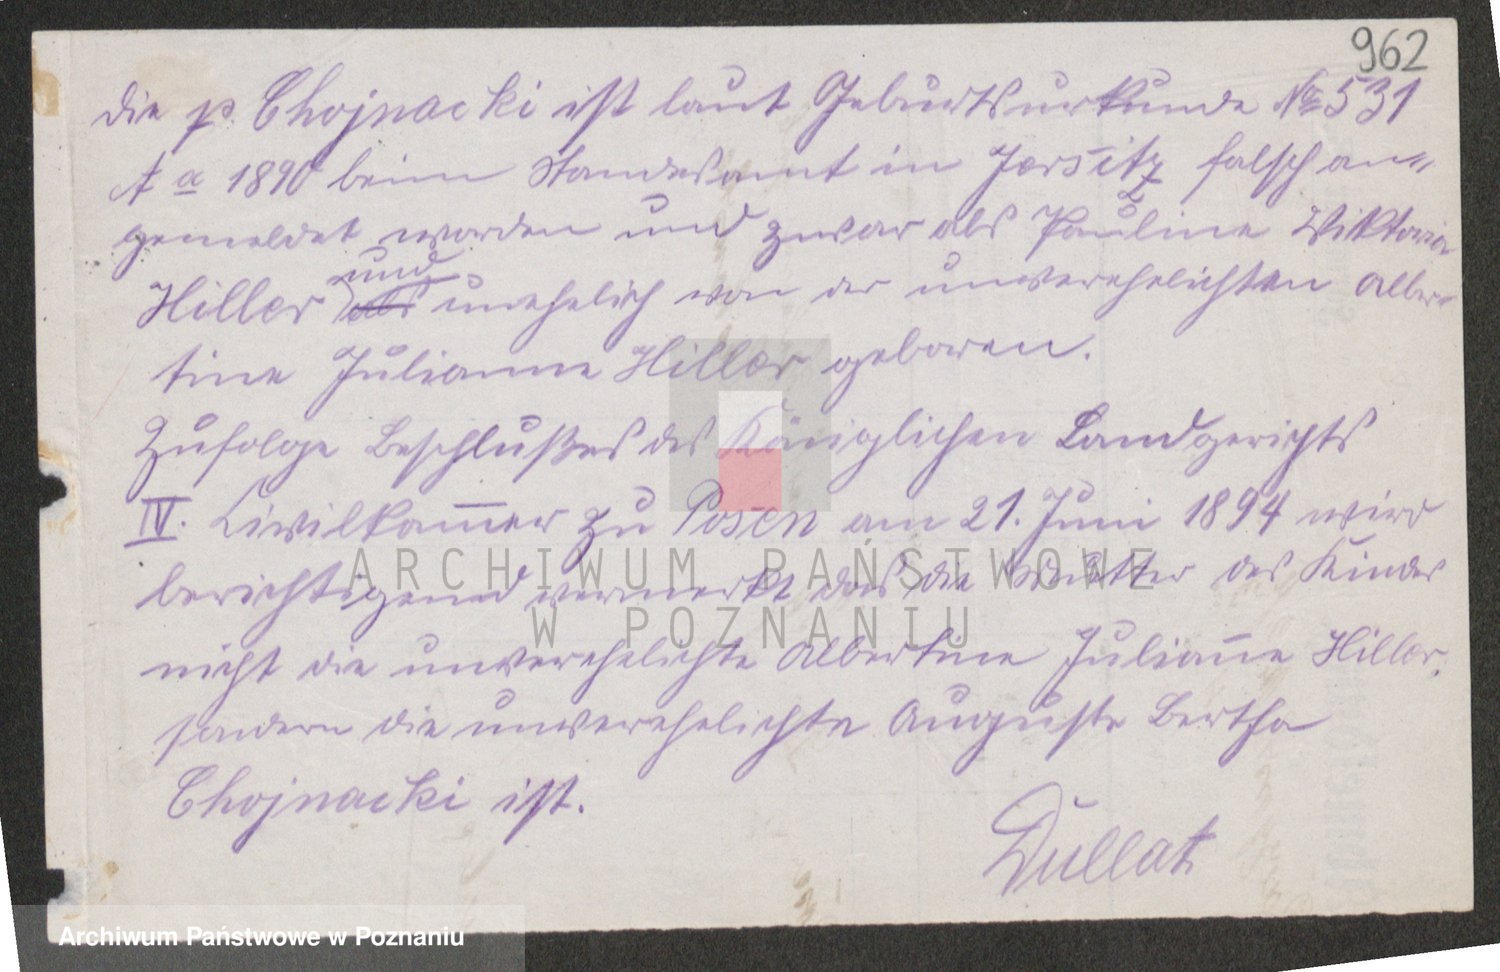 962
die p. Chojnacki ist laut Geburtsurkunde No 531
a 1890 beim Standesamt in Jersitz falsch an-
gemeldet worden und zwar als Pauline Wiktoria
und
Hiller als unehelich von der unverehelichten Alber-
tine Julianne Hiller geboren.
Zufolge Beschlußes des Königlichen Landgerichts
IV. Civilkam̅er zu Posen am 21. Juni 1894 wird
berichtigend vermerkt das die Mutter des Kindes
nicht die unverehelichte Albertine Julian̅e Hiller,
sondern die unverehelichte Auguste Bertha
Chojnacki ist.
Dullat
ARCHIWUM PAŃSTWOWE
W POZNANIU
Archiwum Państwowe w Poznaniu